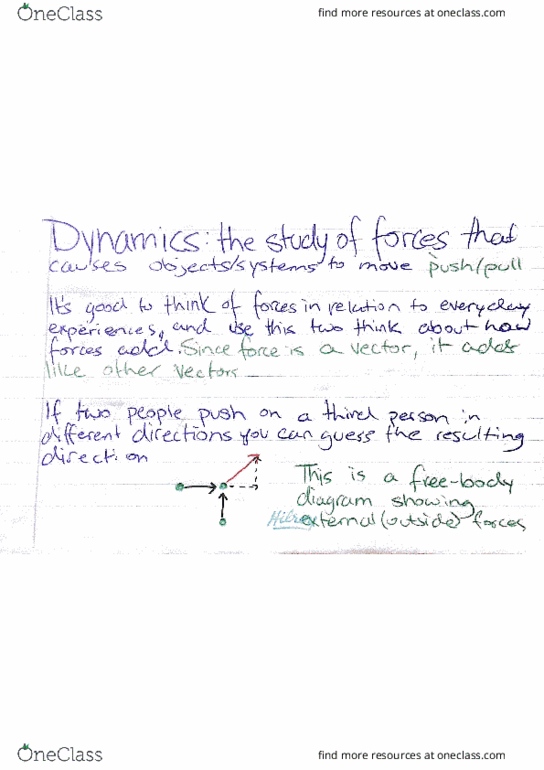 OneClass
find more resources at oneclass.com
Dynamics: the study of forces that
causes objects/systems to move push/pull
It's good to think of forces in relation to everyday
experiences, and use this two think about how
forces add. Since force is a vector, it adds
like other vectors
If two people push on a third person in
different directions you can guess the resulting
direction
This is a free-body
diagram showing
external (outside) forces
OneClass
find more resources at oneclass.com